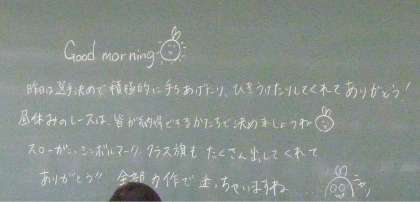 Good morning
昨日は選手決めで積極的に手をあげたり、ひきうけたりしてくれてありがとう!
昼休みのレースは、皆が納得できるかたちで決めましょうね
スローガン、シンボルマーク、クラス旗もたくさん出してくれて
ありがとう!! 全部力作で迷っちゃいますね